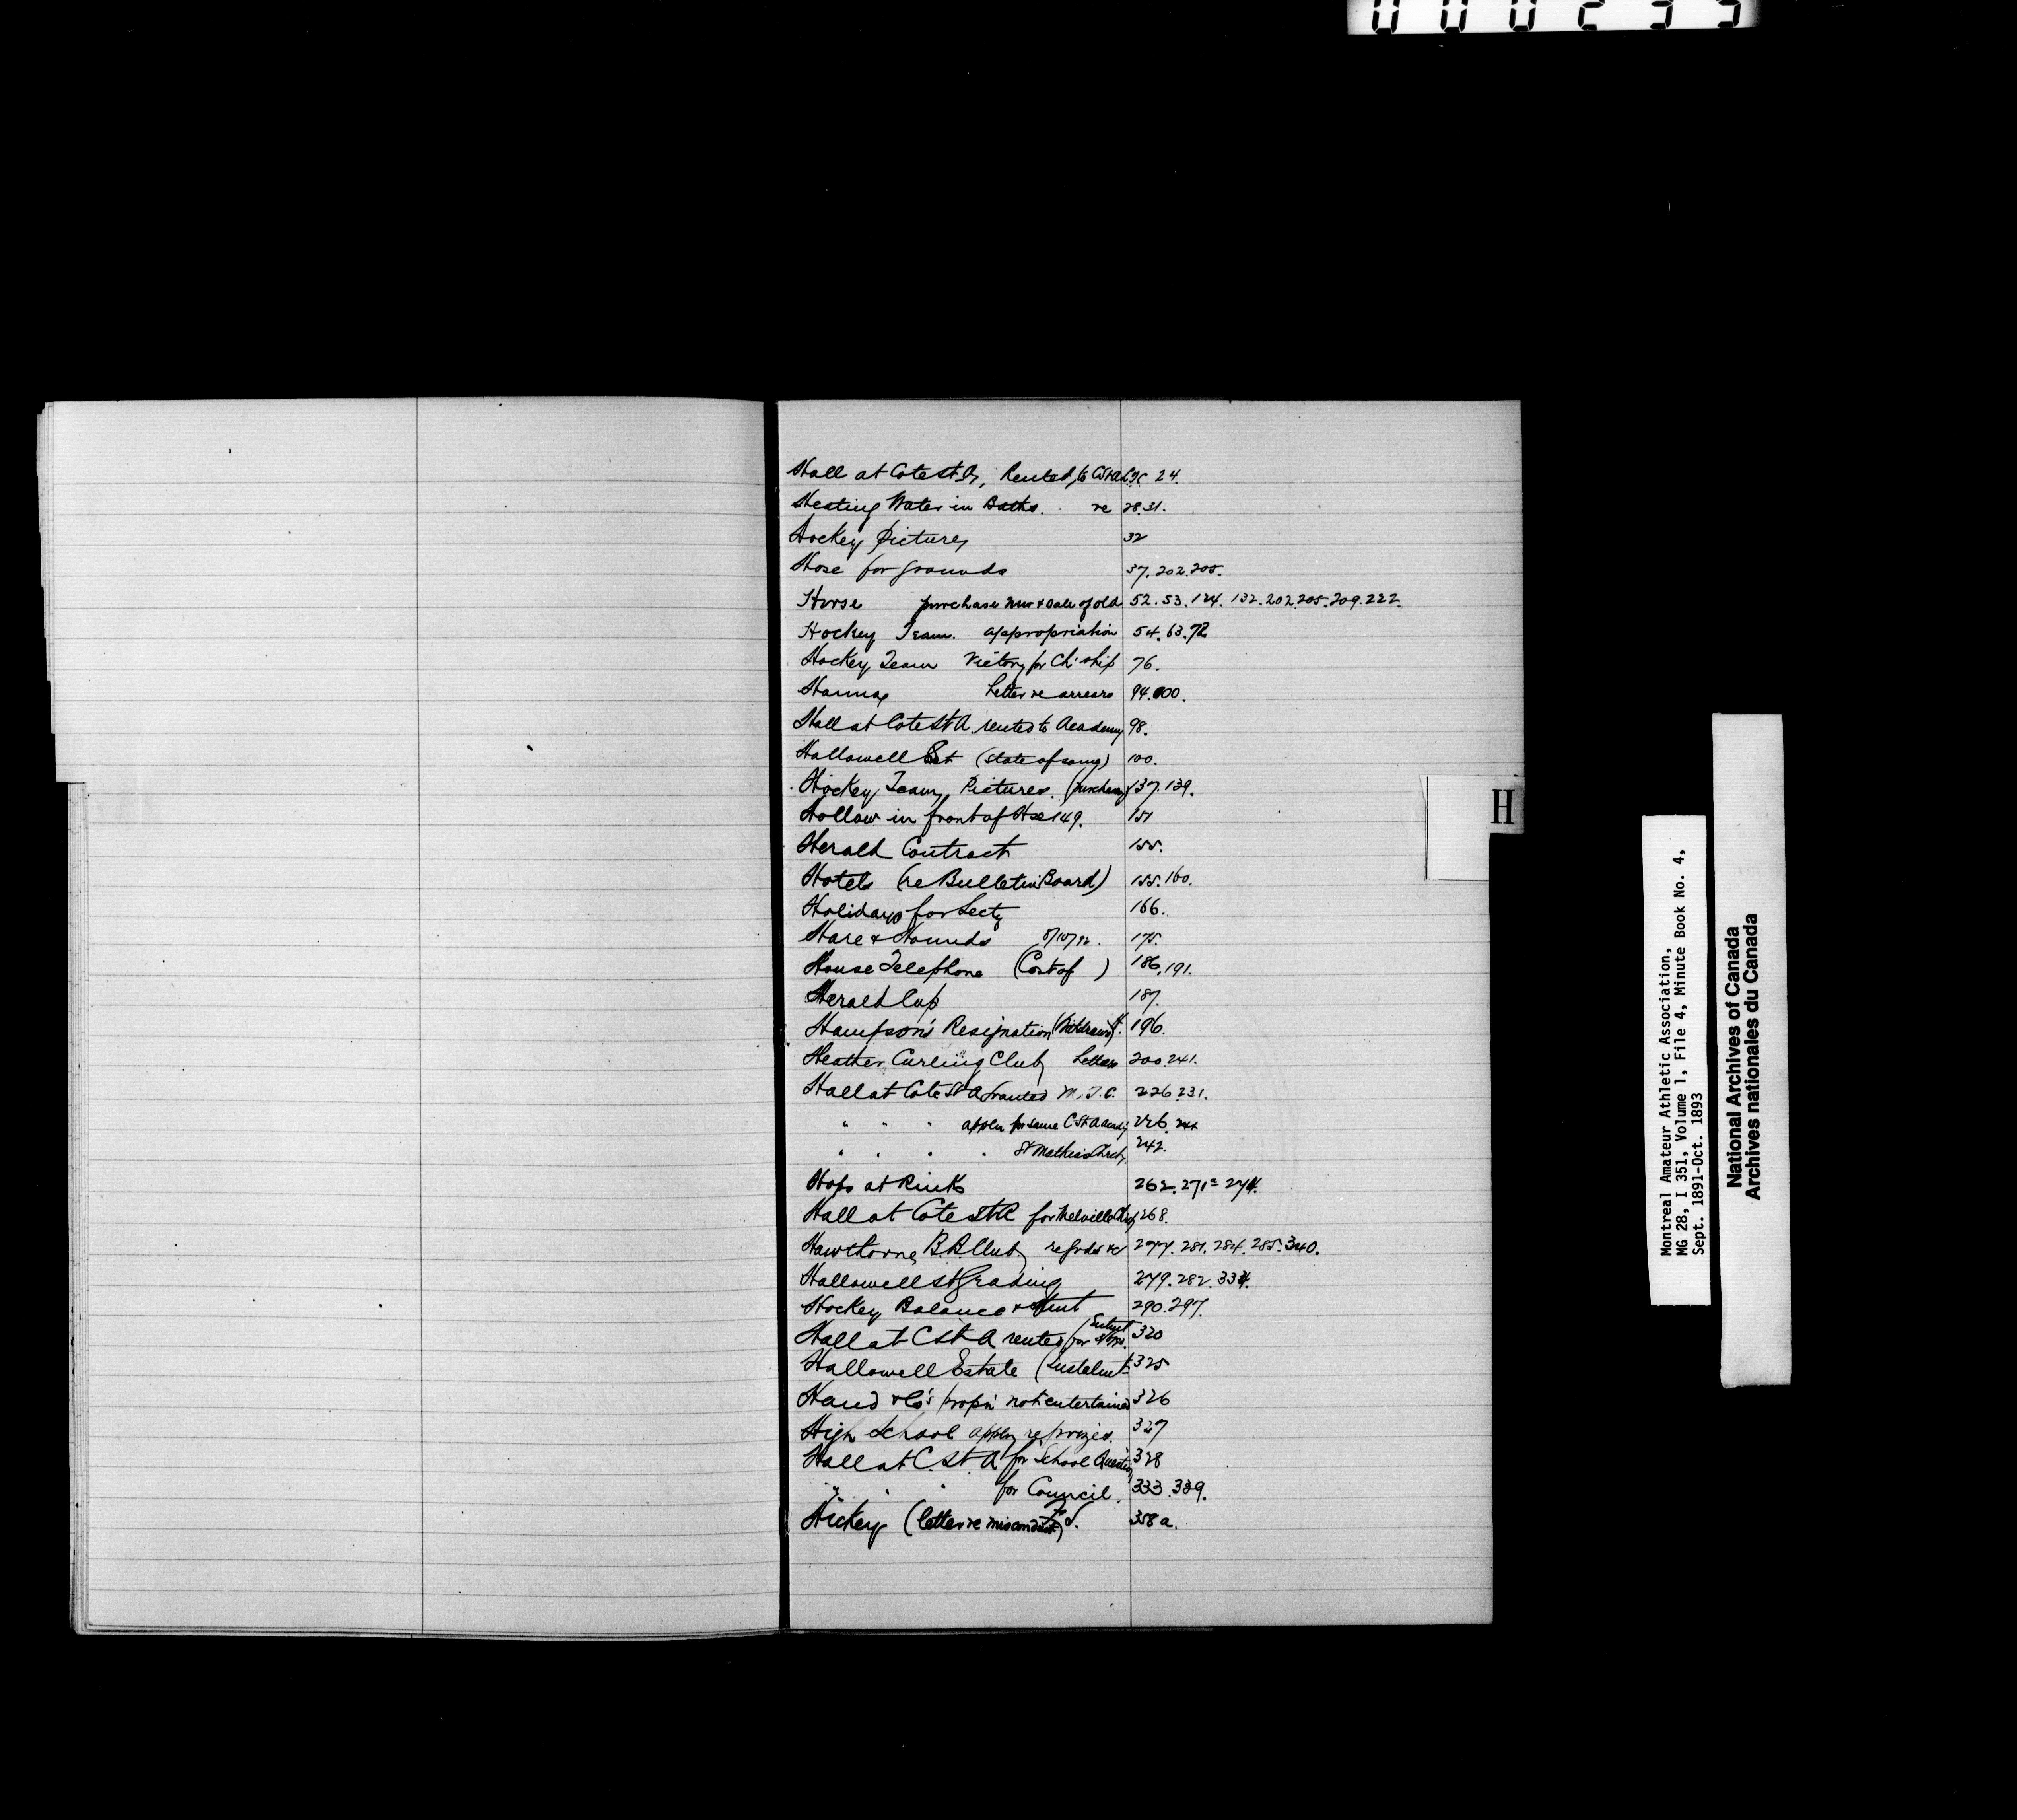 Hall at Cote St A, Rented to 24.
Heating Water in Baths. re 28.31.
Hockey pictures 32
Hose for grounds 37.202.205.
Horse purchase new & sale of old 52.53.124.132.202.205.209.222.
Hockey Team. appropriation 54.63.72
Hockey Team Victory for Ch:ship 76.
Hannay letter re arrears 94.100.
Hall at Cote St A. rented to Academy 98.
Hallowell Est (state of) 100.
Hockey Team Pictures. 137.139.
Hollow in front of Hse 149. 151
Herald Contract 155.
Hotels (re Bulletin Board) 155.160.
Holidays for Secty 166.
Hare & Hounds 8/10/92. 175.
House Telephone (Cost of ) 186.191.
Herald Cup 187.
Hampson's Resignation (Withdrawn). 196.
Heather Curling Club Letters 200.241.
Hall at Cote St A granted M.T.C. 226.231.
" " " appln for same C St A 226.
" " " " St Mathias Church 242.
Hops at Rink 262.271=274.
Hall at Cote St A for Melville Chch 268.
Hawthorne B.B. Club 277.281.284.285.340.
Hallowell St Grading 279.282.334.
Hockey Balance & 290.297.
Hall at C St A rented for 320
Hallowell Estate (Instalmt 325
Hand & Co's propn not entertained 326
High School appln re prizes. 327
Hall at C. St. A for School Question 328
" " " for Council. 333.339.
Hickey (letter re misconduct) 358a.
H
Montreal Amateur Athletic Association,
MG 28, I 351, Volume 1, File 4, Minute Book No. 4,
Sept. 1891-Oct. 1893
National Archives of Canada
Archives nationales du Canada